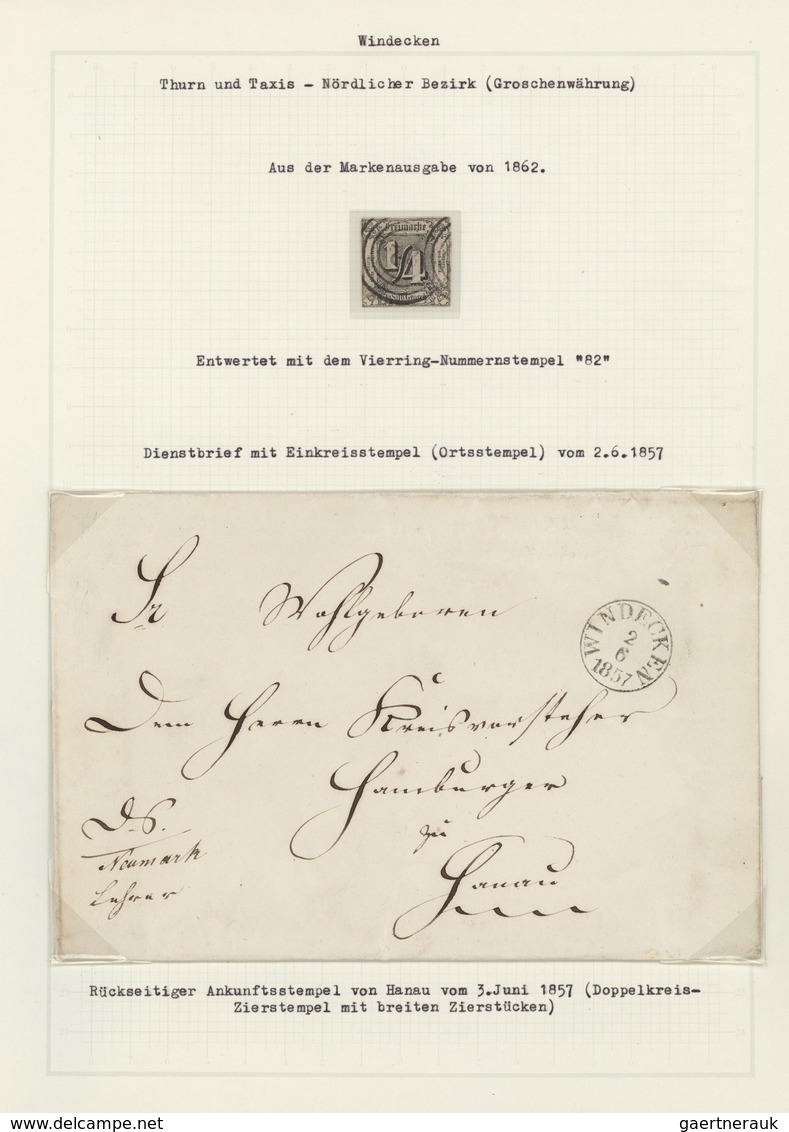 Windecken
Thurn und Taxis - Nördlicher Bezirk (Groschenwährung)
Aus der Markenausgabe von 1862.
Freimarke
1/4
Entwertet mit dem Vierring-Nummernstempel "82"
Dienstbrief mit Einkreisstempel (Ortsstempel) vom 2.6.1857
Sr Wohlgeboren
WINDECKEN
2
6
1857
Dem Herrn Kreisvorsteher
Hamburger
zu
Hanau
D.S.
Neumark
Lehrer
Rückseitiger Ankunftsstempel von Hanau vom 3.Juni 1857 (Doppelkreis-
Zierstempel mit breiten Zierstücken)
www.delcampe.net
gaertnerauk